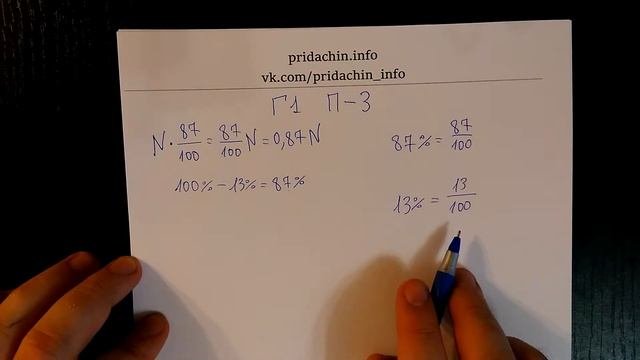 pridachin.info
vk.com/pridachin_info
Г1 П-3
N · 87/100 = 87/100 N = 0,87N
87% = 87/100
100% - 13% = 87%
13% = 13/100